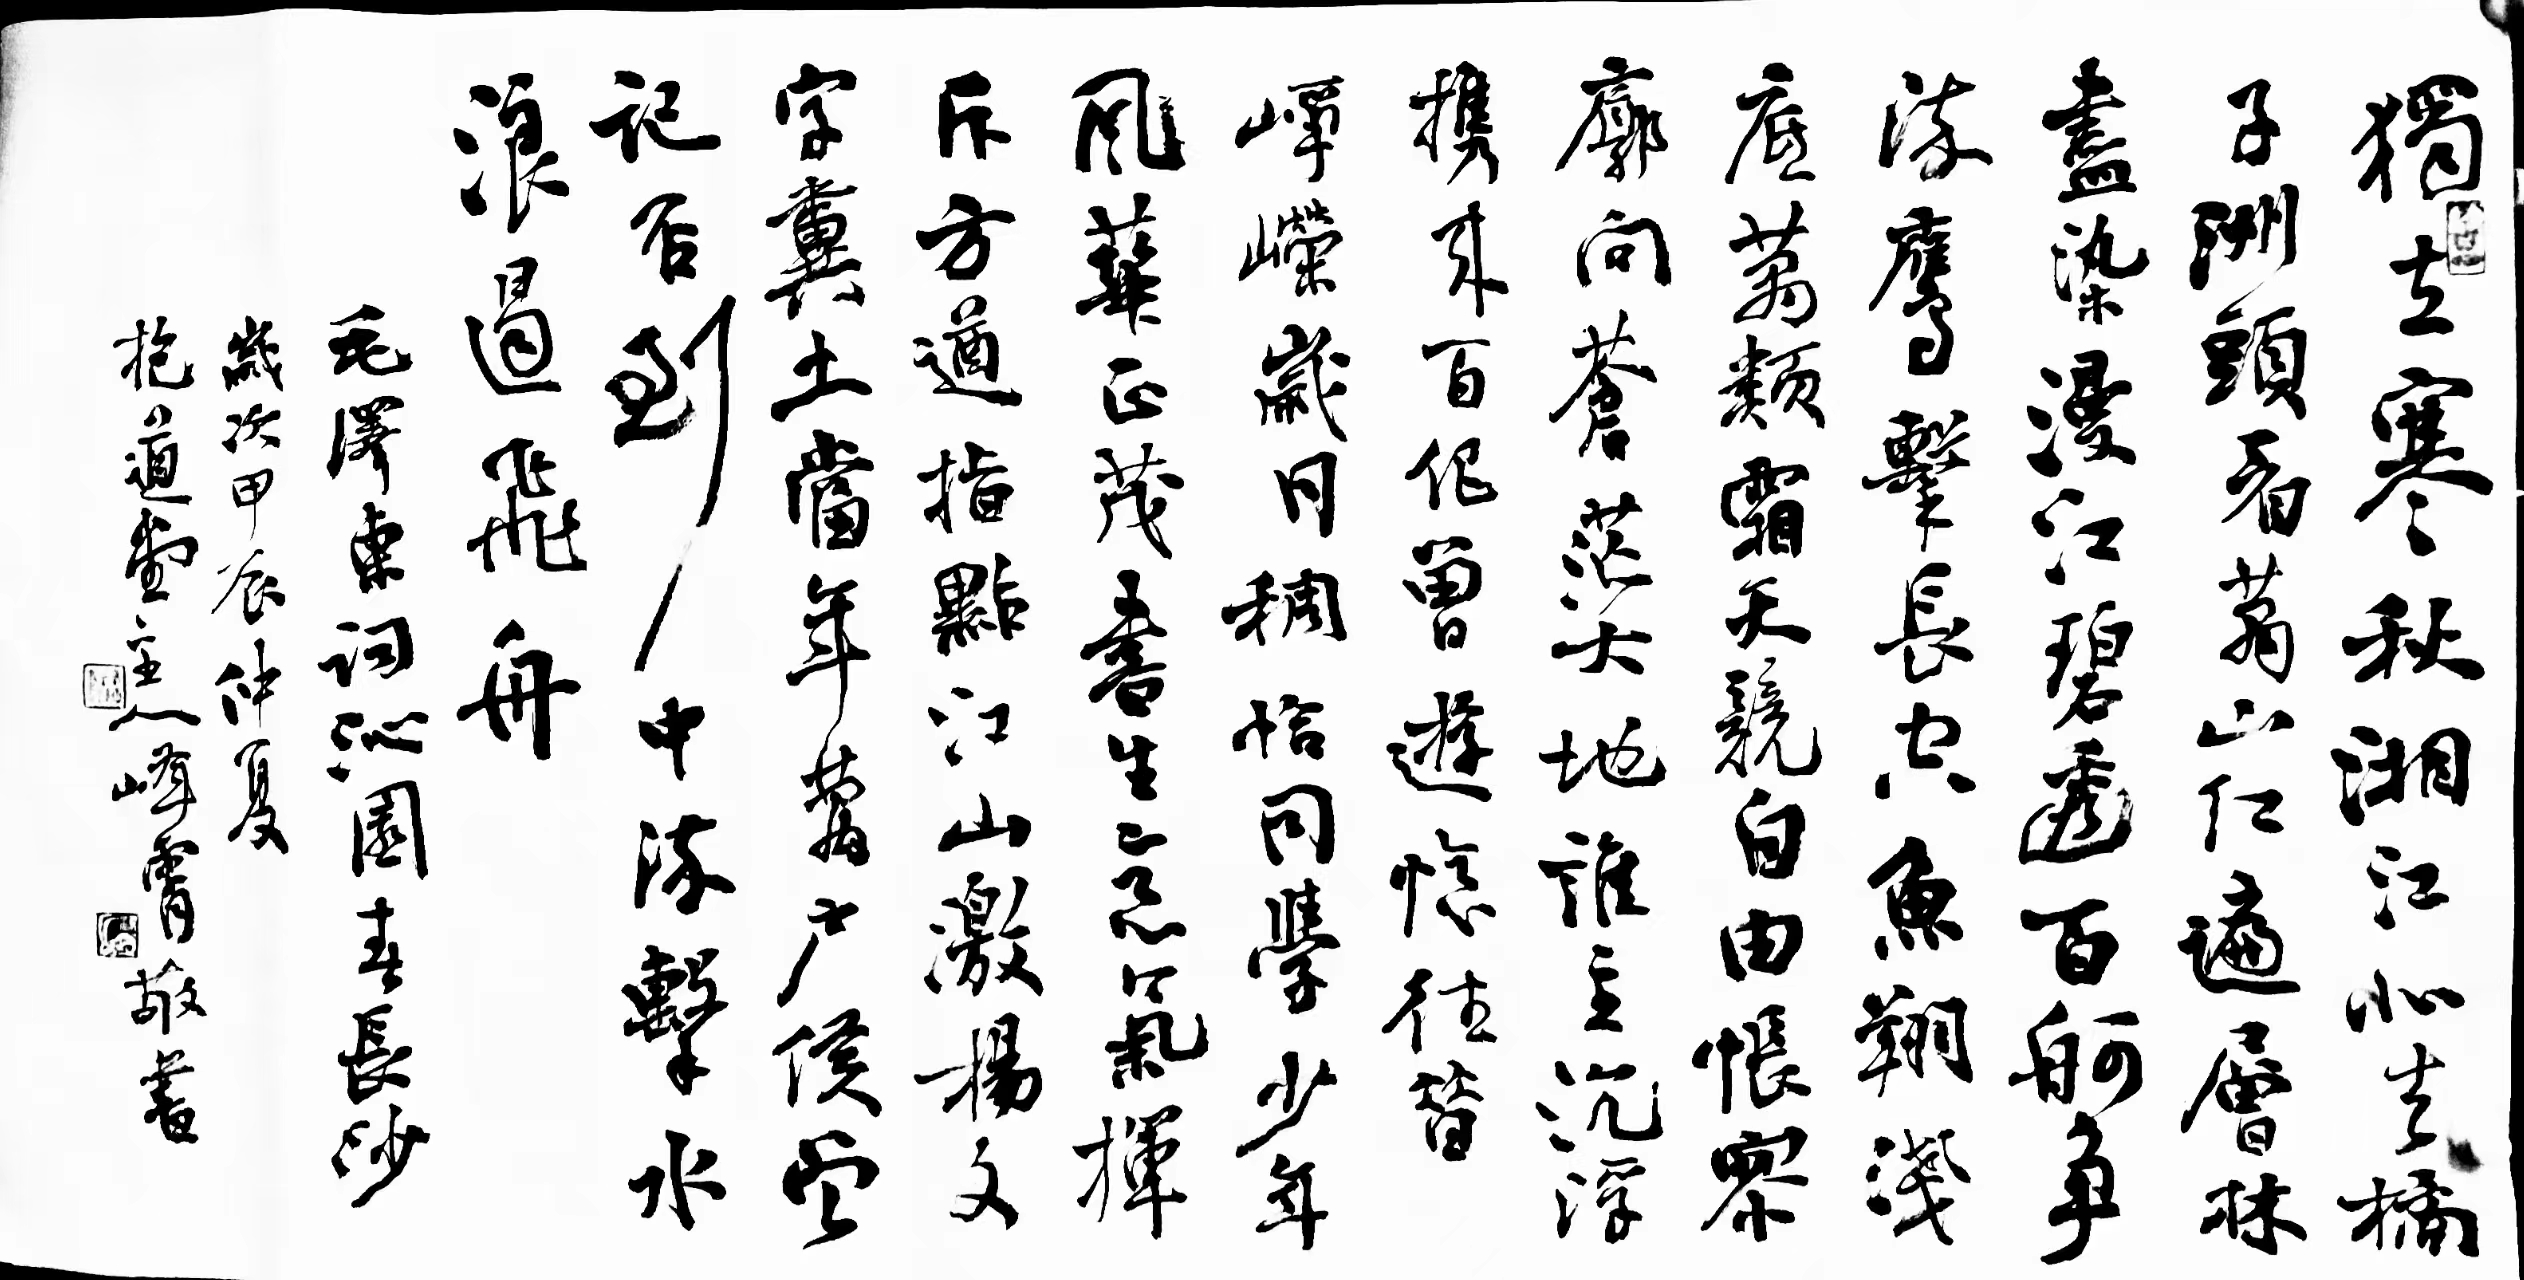 獨立寒秋湘江北去橘
子洲頭看萬山红遍層林
盡染漫江碧透百舸争
流鷹擊長空魚翔淺
底萬類霜天競自由悵寥
廓问蒼茫大地誰主沉浮
携来百侣曾遊憶往昔
崢嶸歲月稠恰同學少年
風華正茂書生意氣揮
斥方遒指點江山激揚文
字糞土當年萬户侯曾
記否到中流擊水
浪遏飛舟
毛澤東詞沁園春長沙
歲次甲辰仲夏
抱道堂主人峰霄敬書